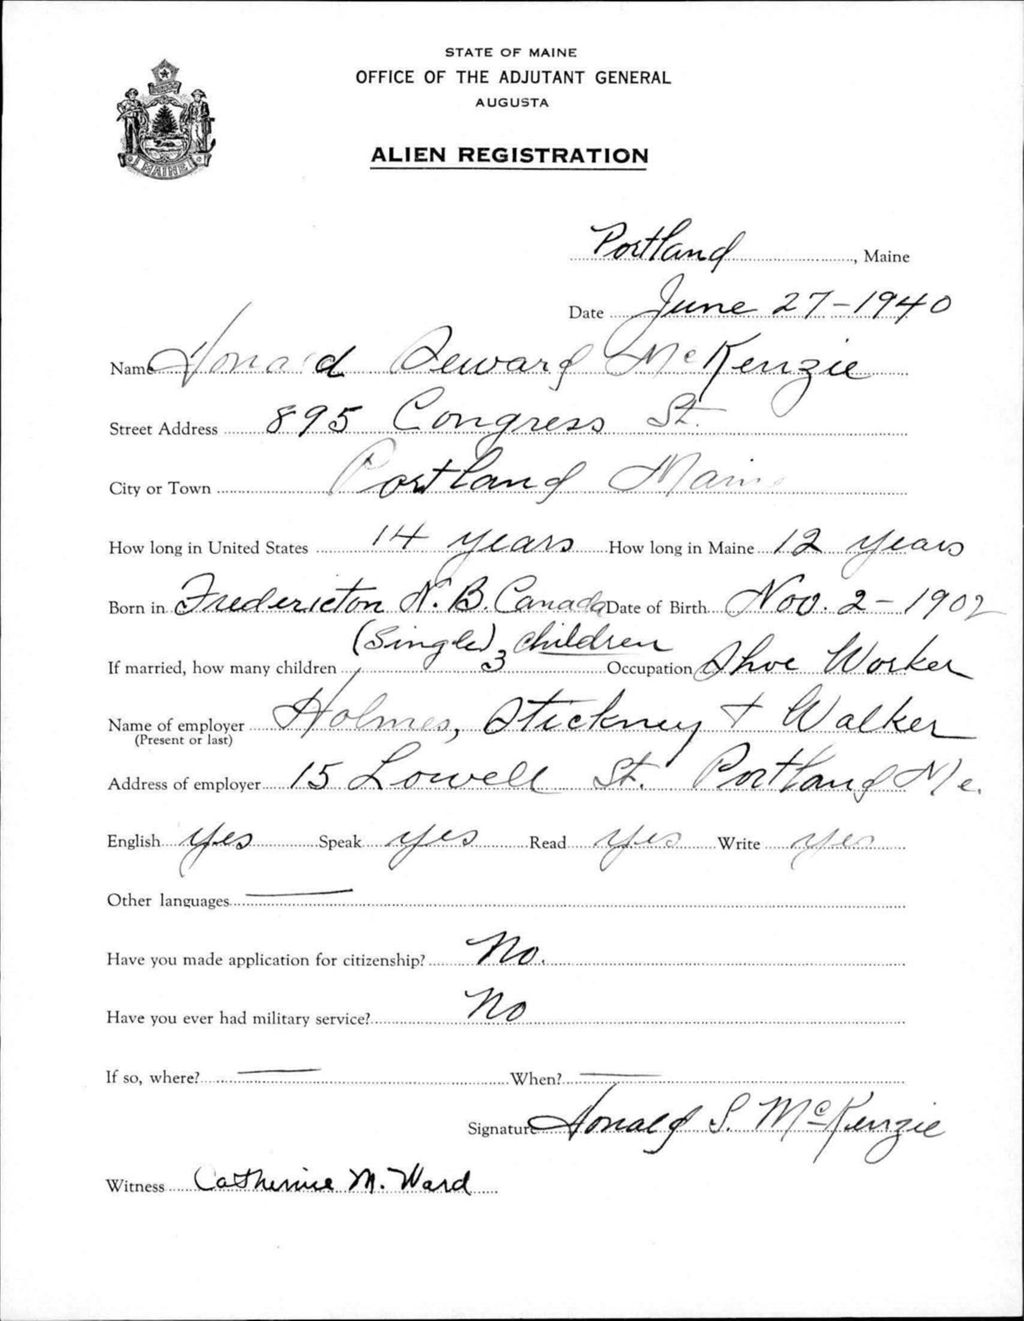 STATE OF MAINE
OFFICE OF THE ADJUTANT GENERAL
AUGUSTA
ALIEN REGISTRATION
MAINE
Portland, Maine
Date June 27-1940
Name Donald Seward McKenzie
Street Address 895 Congress St.
City or Town Portland Maine
How long in United States 14 years How long in Maine 12 years
Born in Fredericton N.B. Canada Date of Birth Nov. 2-1902
(Single) 3 children
If married, how many children Occupation Shoe Worker
Name of employer Holmes, Stickney + Walker
(Present or last)
Address of employer 15 Lowell St. Portland Me.
English yes Speak yes Read yes Write yes
Other languages
Have you made application for citizenship? No.
Have you ever had military service? No
If so, where? When?
Signature Donald S. McKenzie
Witness Catherine M. Ward